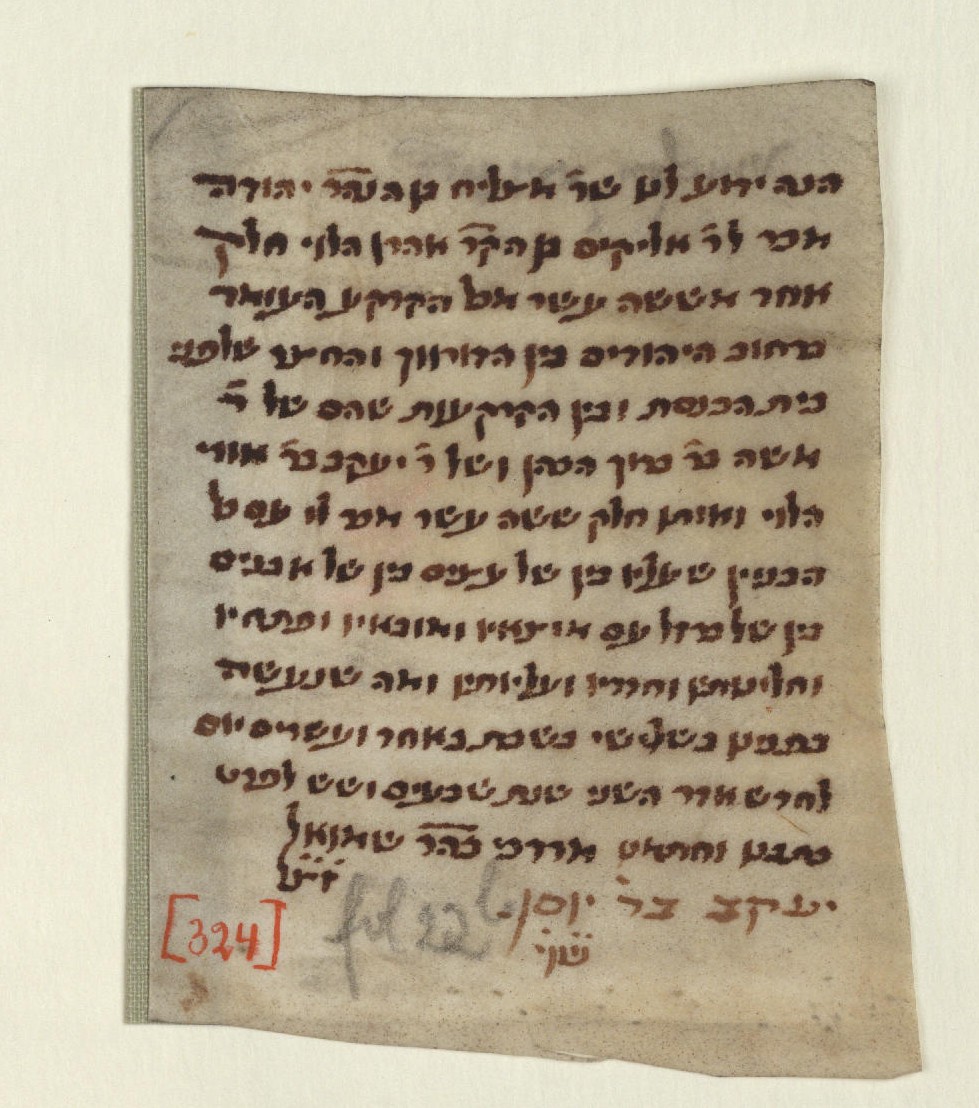 הנה ידוע לנו שר' אצליח בן הנהר' יהודה
מכר לר' אליקים בן הקר' אהרן הלוי חלק
אחד מששה עשר מכל הקרקע העומד
ברחוב היהודים בין הדורווך והחיצ' שלפני
בית הכנסת ובין הקרקעות שהם של ר'
משה בר' ברוך הכהן ושל ר' יעקב בר' אורי
הלוי ואותו חלק ששה עשר מכר לו עם כל
הבניין שעליו בין של עצים בין של אבנים
בין של ברזל עם מוצאיו ומובאיו ופתחיו
וחליטתיו וחדריו ועליותיו ומה שנעשה
כתבנו בשלישי בשבת באחד ועשרים יום
לחדש אדר השני שנת שבעים ושש לפרט
כתבנו וחתמנו מרדכי בהר' שמואל
זצ"ל
יעקב בר' יוסף
שי'
fol 22 b
[324]